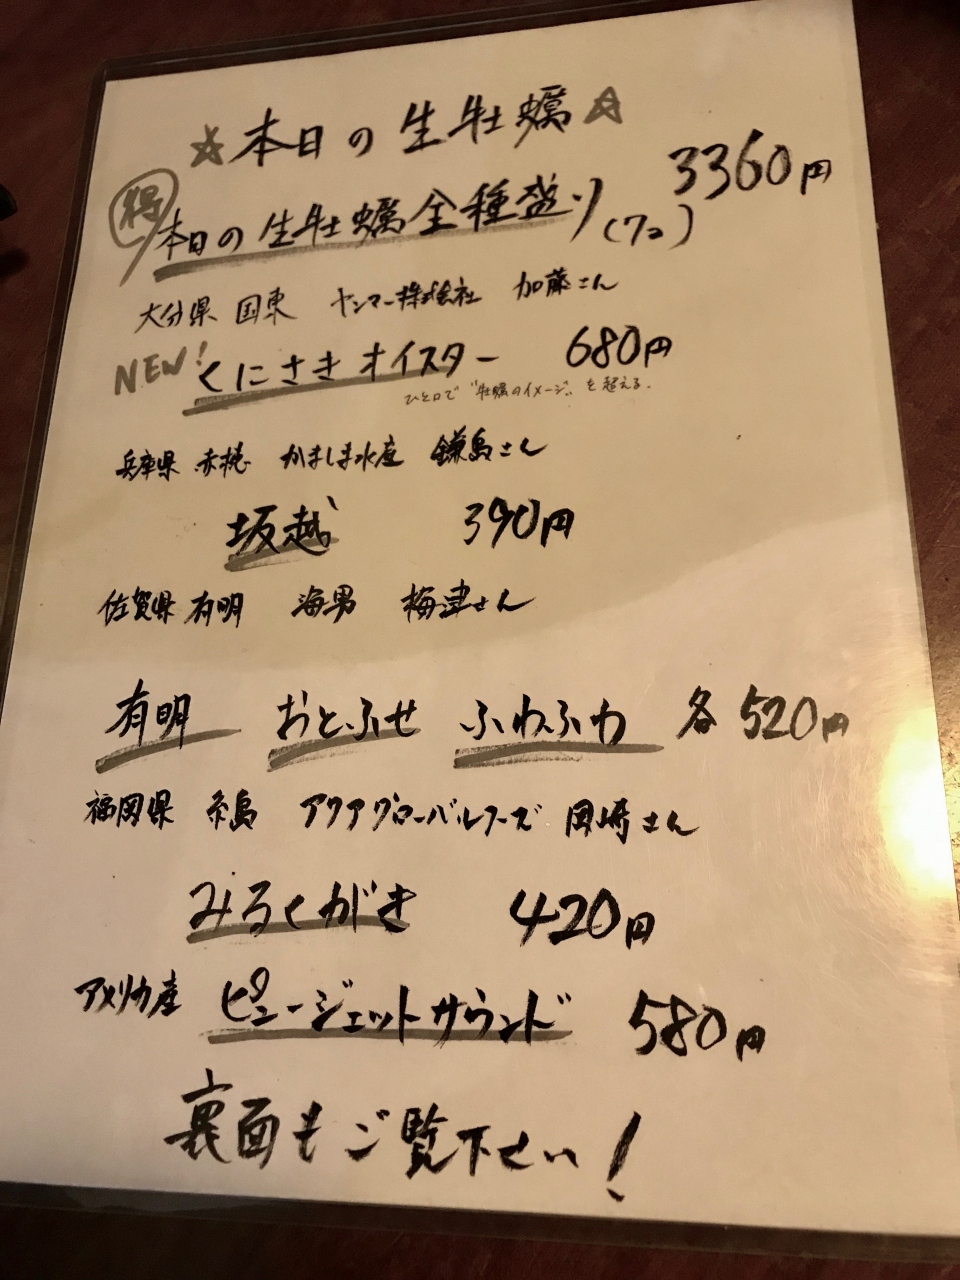 ☆本日の生牡蠣☆
得 本日の生牡蠣全種盛り(7コ) 3360円
大分県 国東 ヤンマー株式会社 加藤さん
NEW! くにさきオイスター 680円
ひと口で〝牡蠣のイメージ〟を超える。
兵庫県 赤穂 かましま水産 鎌島さん
坂越 390円
佐賀県 有明 海男 梅津さん
有明 おとふせ ふわふわ 各520円
福岡県 糸島 アクアグローバルフーズ 岡崎さん
みるくがき 420円
アメリカ産 ピュージェットサウンド 580円
裏面もご覧下せい!